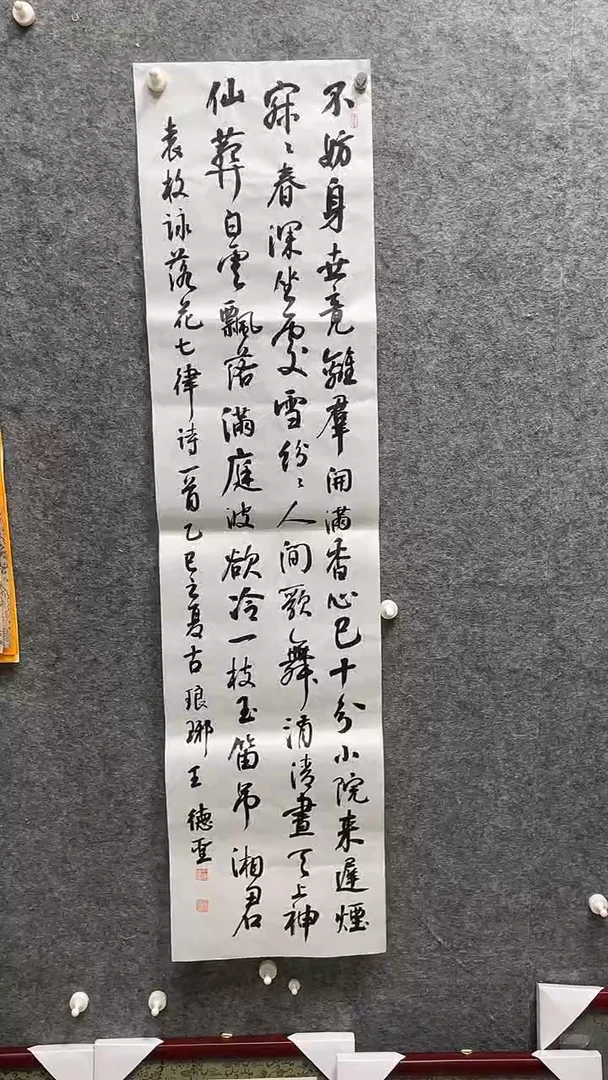 不妨身世竟離羣開滿香心已十分小院来遲煙
寂〻春深坐處雪紛〻人间歌舞消清晝天上神
仙葬白雲飄落滿庭波欲冷一枝玉笛吊湘君
袁枚詠落花七律诗一首乙巳之夏古琅琊王德聖